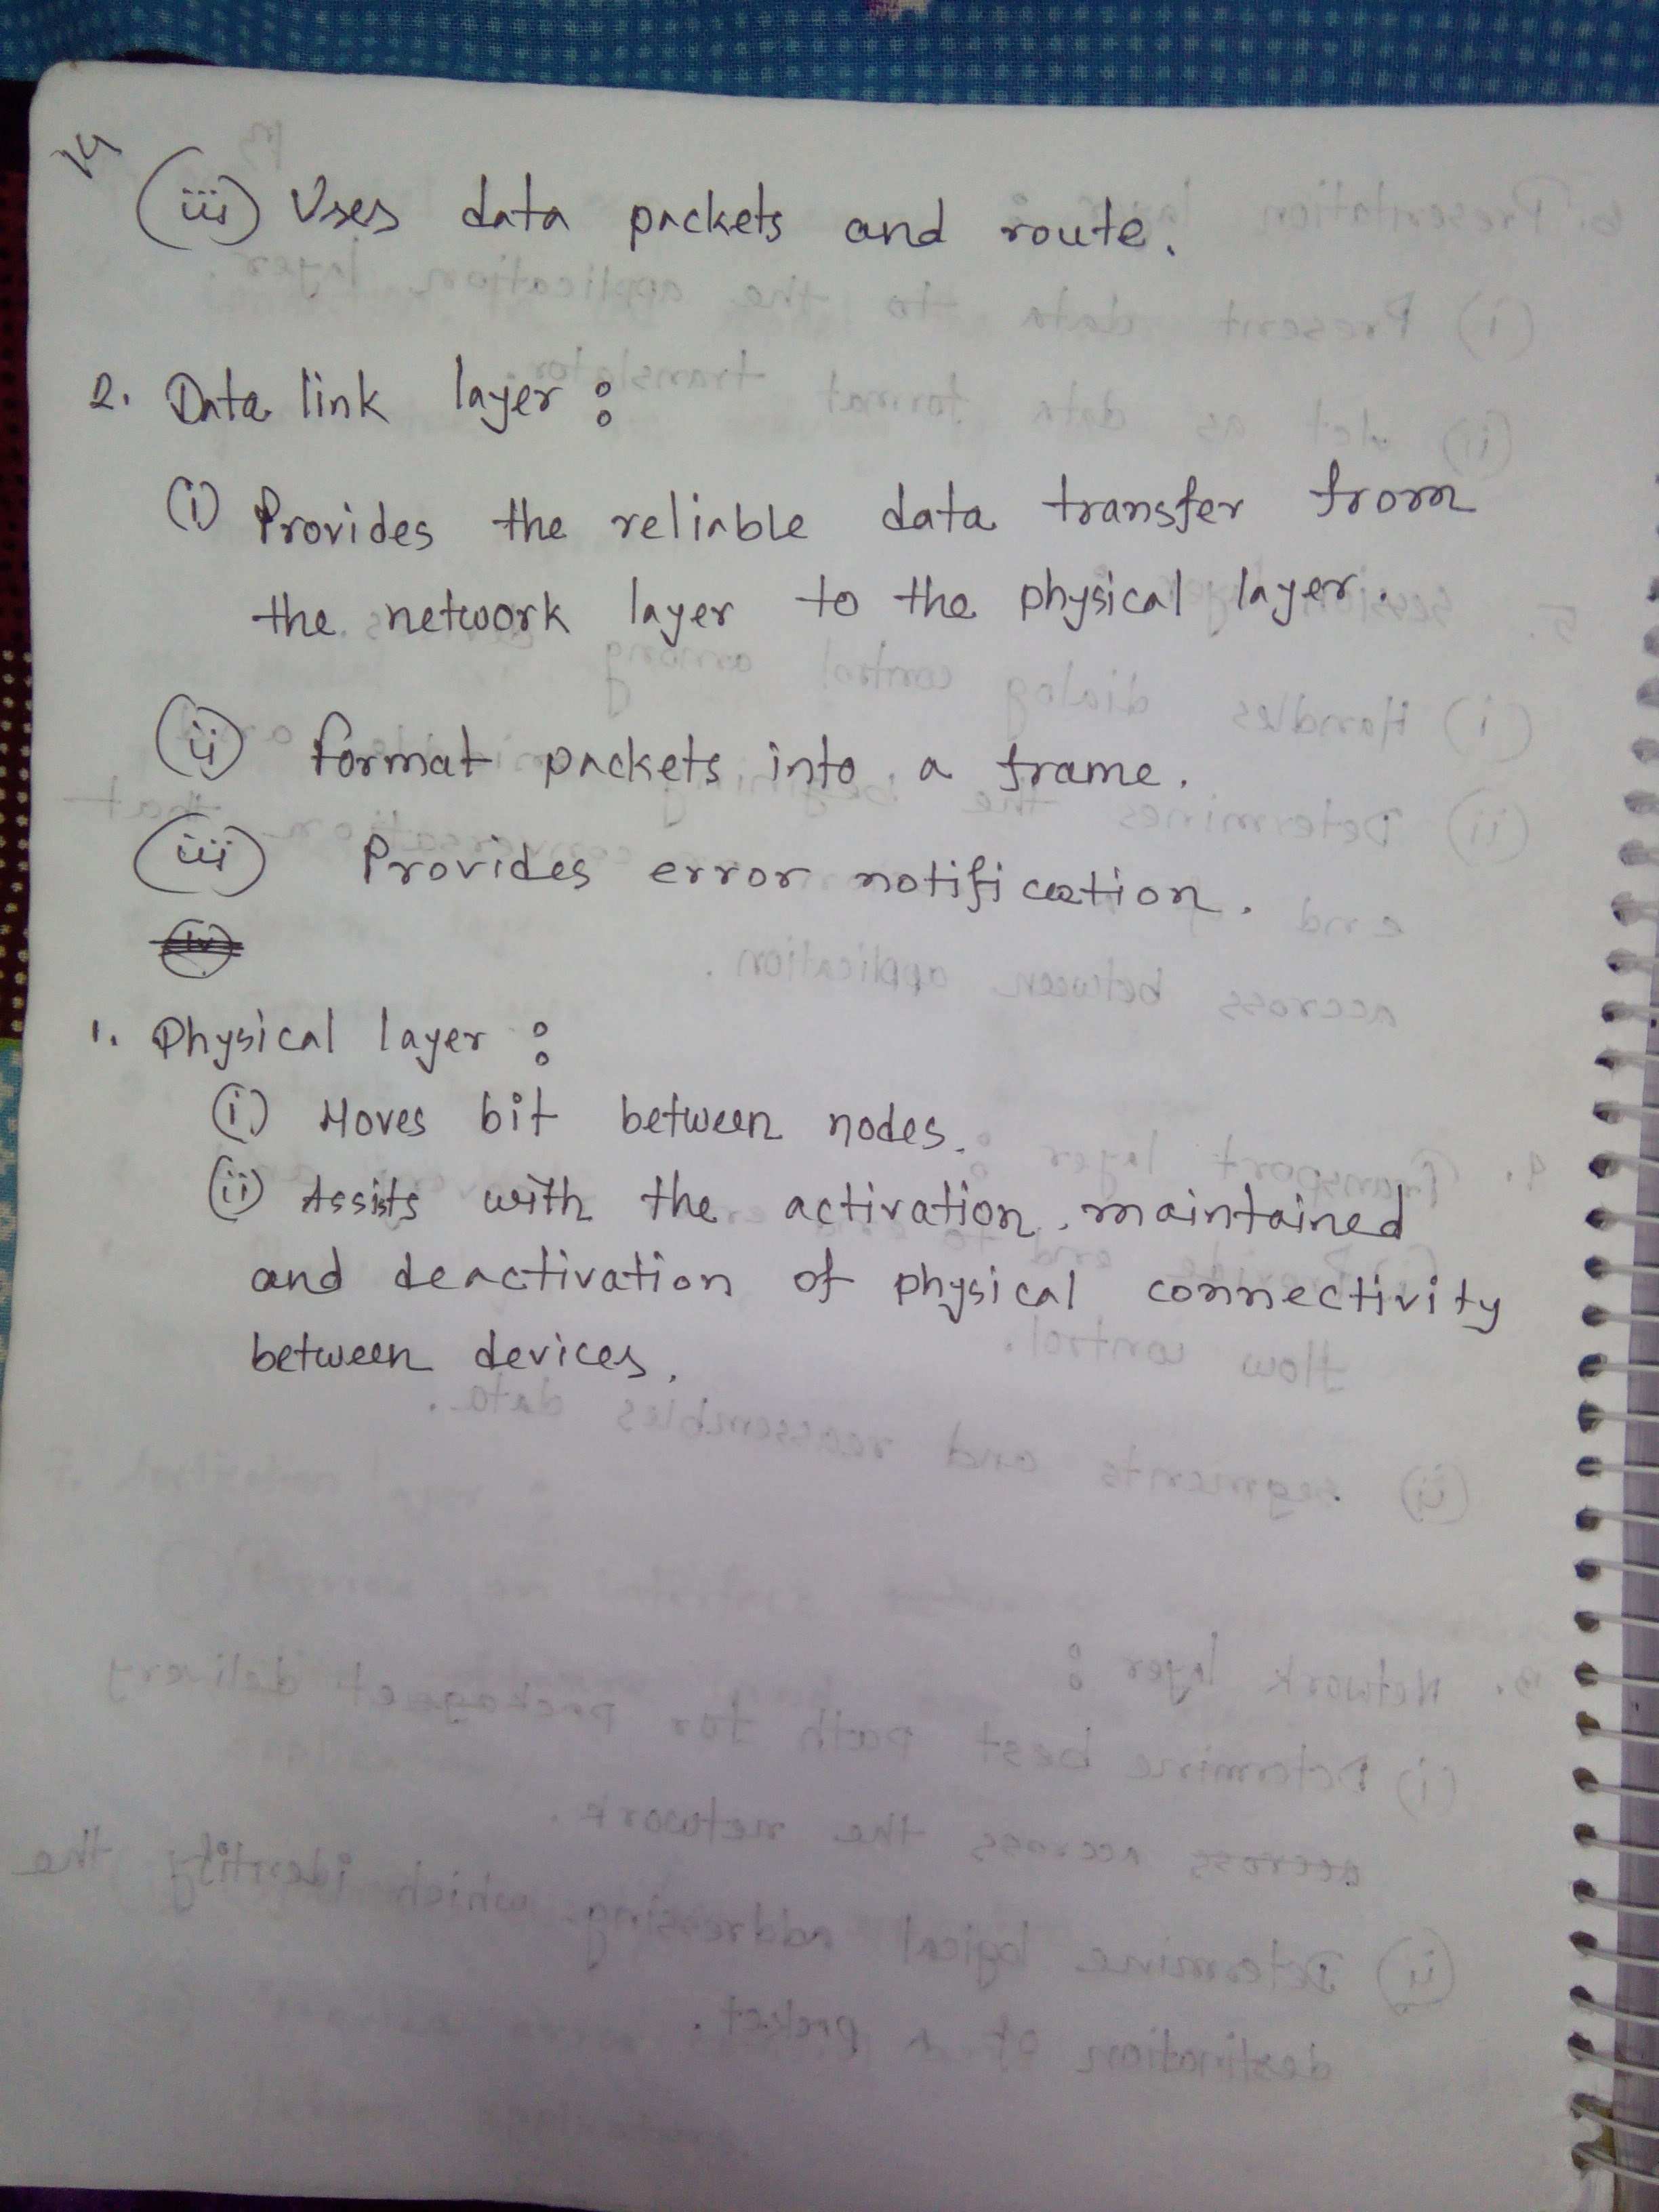 14
(iii) Uses data packets and route.
2. Data link layer :
(i) Provides the reliable data transfer from
the network layer to the physical layer.
(ii) format packets into a frame.
(iii) Provides error notification.
(iv)
1. Physical layer :
(i) Moves bit between nodes.
(ii) Assists with the activation, maintained
and deactivation of physical connectivity
between devices.